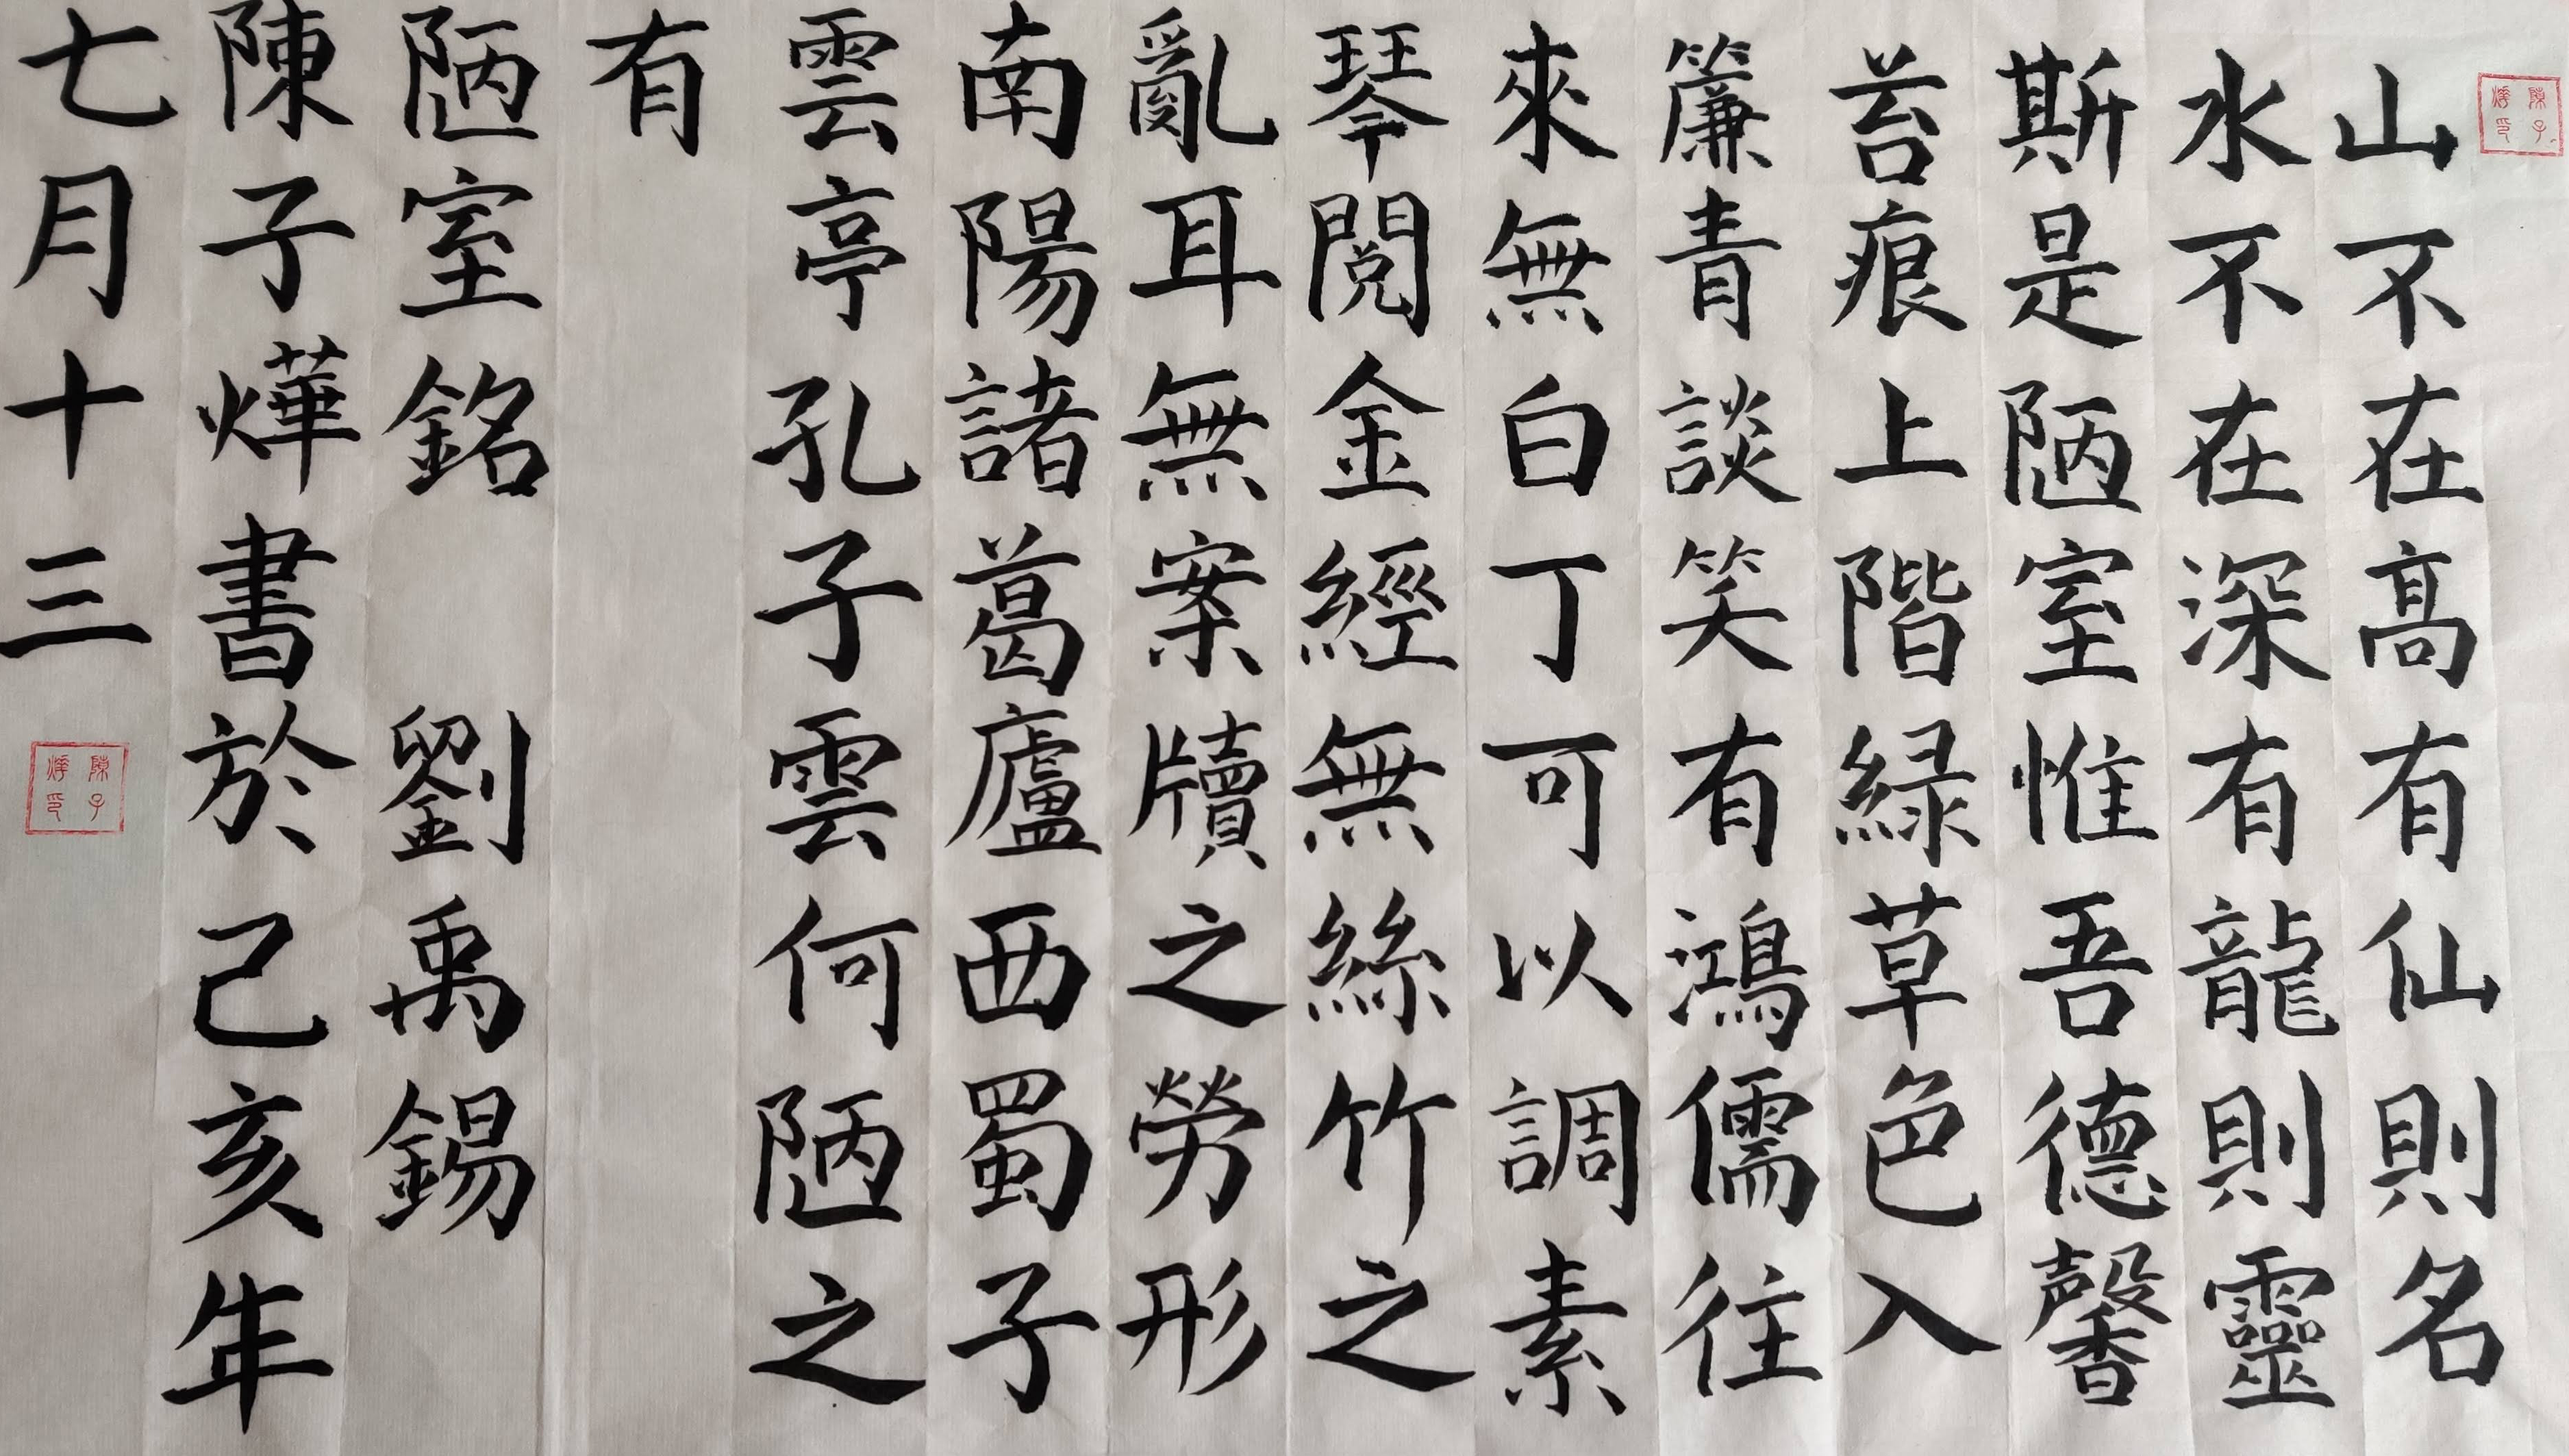 山不在高有仙則名
水不在深有龍則靈
斯是陋室惟吾德馨
苔痕上階緑草色入
簾青談笑有鴻儒往
來無白丁可以調素
琴閲金經無絲竹之
亂耳無案牘之勞形
南陽諸葛廬西蜀子
雲亭孔子雲何陋之
有
陋室銘 劉禹錫
陳子燁書於己亥年
七月十三